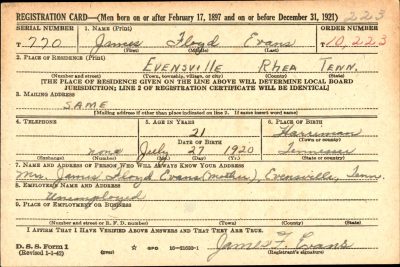 REGISTRATION CARD—(Men born on or after February 17, 1897 and on or before December 31, 1921) 223
SERIAL NUMBER 1. NAME (Print) ORDER NUMBER
T 770 James Floyd Evans T 10,223
(First) (Middle) (Last)
2. PLACE OF RESIDENCE (Print)
EVENSVILLE RHEA TENN.
(Number and street) (Town, township, village, or city) (County) (State)
[THE PLACE OF RESIDENCE GIVEN ON THE LINE ABOVE WILL DETERMINE LOCAL BOARD
JURISDICTION; LINE 2 OF REGISTRATION CERTIFICATE WILL BE IDENTICAL]
3. MAILING ADDRESS
SAME
[Mailing address if other than place indicated on line 2. If same insert word same]
4. TELEPHONE 5. AGE IN YEARS 6. PLACE OF BIRTH
21 Harriman
DATE OF BIRTH (Town or county)
none July 27 1920 Tennessee
(Exchange) (Number) (Mo.) (Day) (Yr.) (State or country)
7. NAME AND ADDRESS OF PERSON WHO WILL ALWAYS KNOW YOUR ADDRESS
Mrs. James Floyd Evans (Mother), Evensville, Tenn.
8. EMPLOYER'S NAME AND ADDRESS
Unemployed
9. PLACE OF EMPLOYMENT OR BUSINESS
(Number and street or R. F. D. number) (Town) (County) (State)
I AFFIRM THAT I HAVE VERIFIED ABOVE ANSWERS AND THAT THEY ARE TRUE.
D. S. S. Form 1 GPO 16-21630-1 James F. Evans
(Revised 1-1-42) (Registrant's signature)